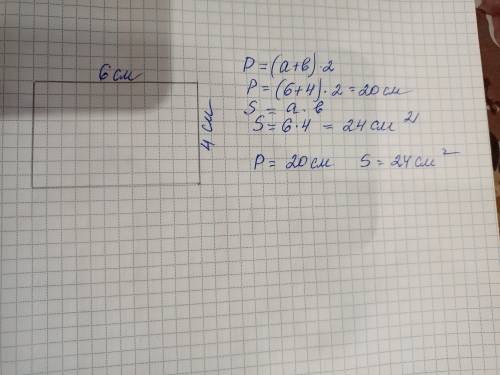 6 см
4 см
P = (a+b)·2
P = (6+4)·2 = 20 см
S = a·b
S = 6·4 = 24 см²
P = 20 см S = 24 см²